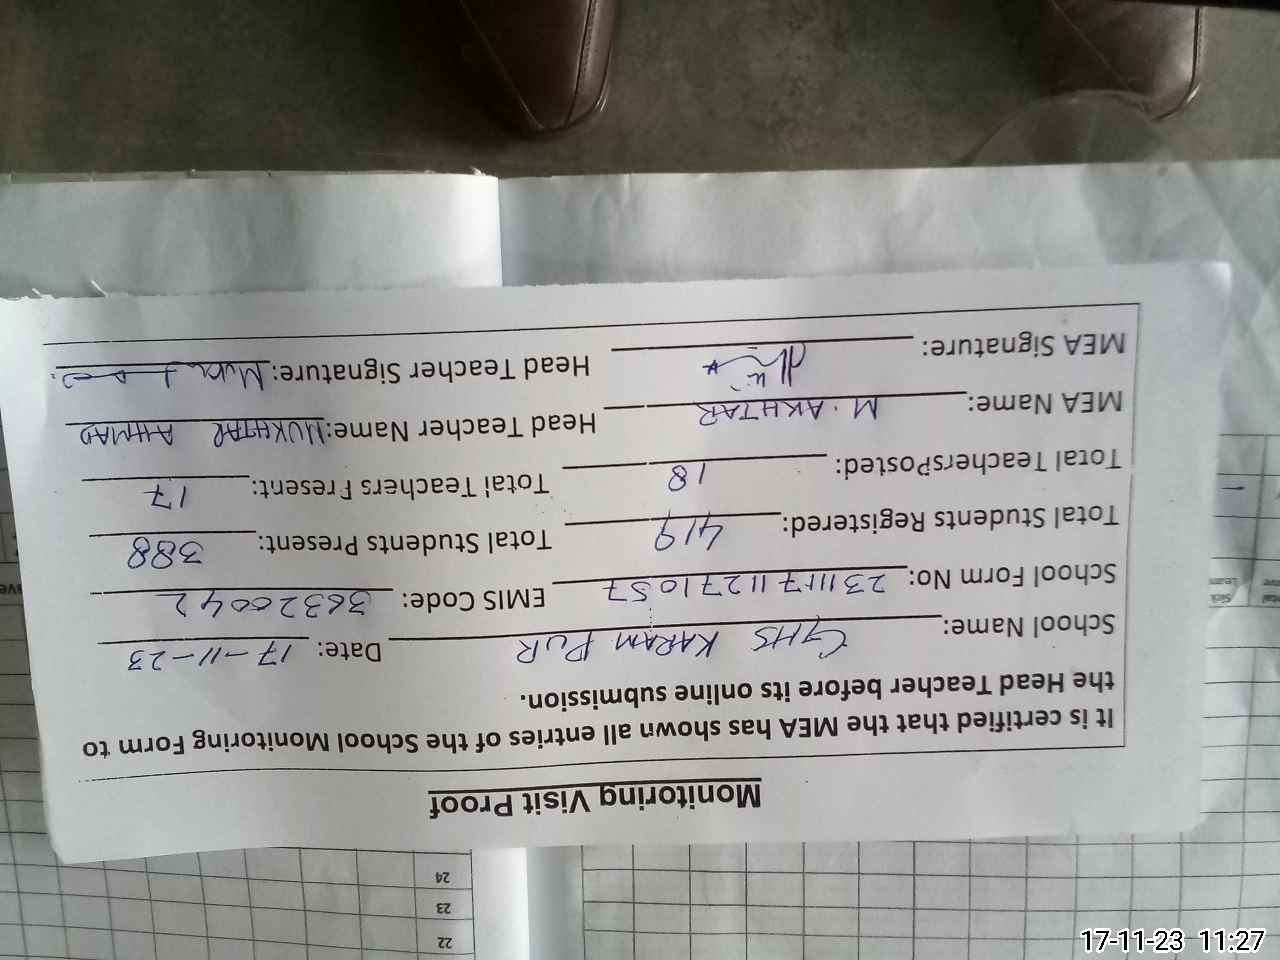 Monitoring Visit Proof
It is certified that the MEA has shown all entries of the School Monitoring Form to
the Head Teacher before its online submission.
School Name: GHS KARAM PUR Date: 17-11-23
School Form No: 23111711271057 EMIS Code: 36320042
Total Students Registered: 419 Total Students Present: 388
Total TeachersPosted: 18 Total Teachers Present: 17
MEA Name: M. AKHTAR Head Teacher Name: MUKHTAR AHMAD
MEA Signature: Head Teacher Signature:
22
23
24
17-11-23 11:27